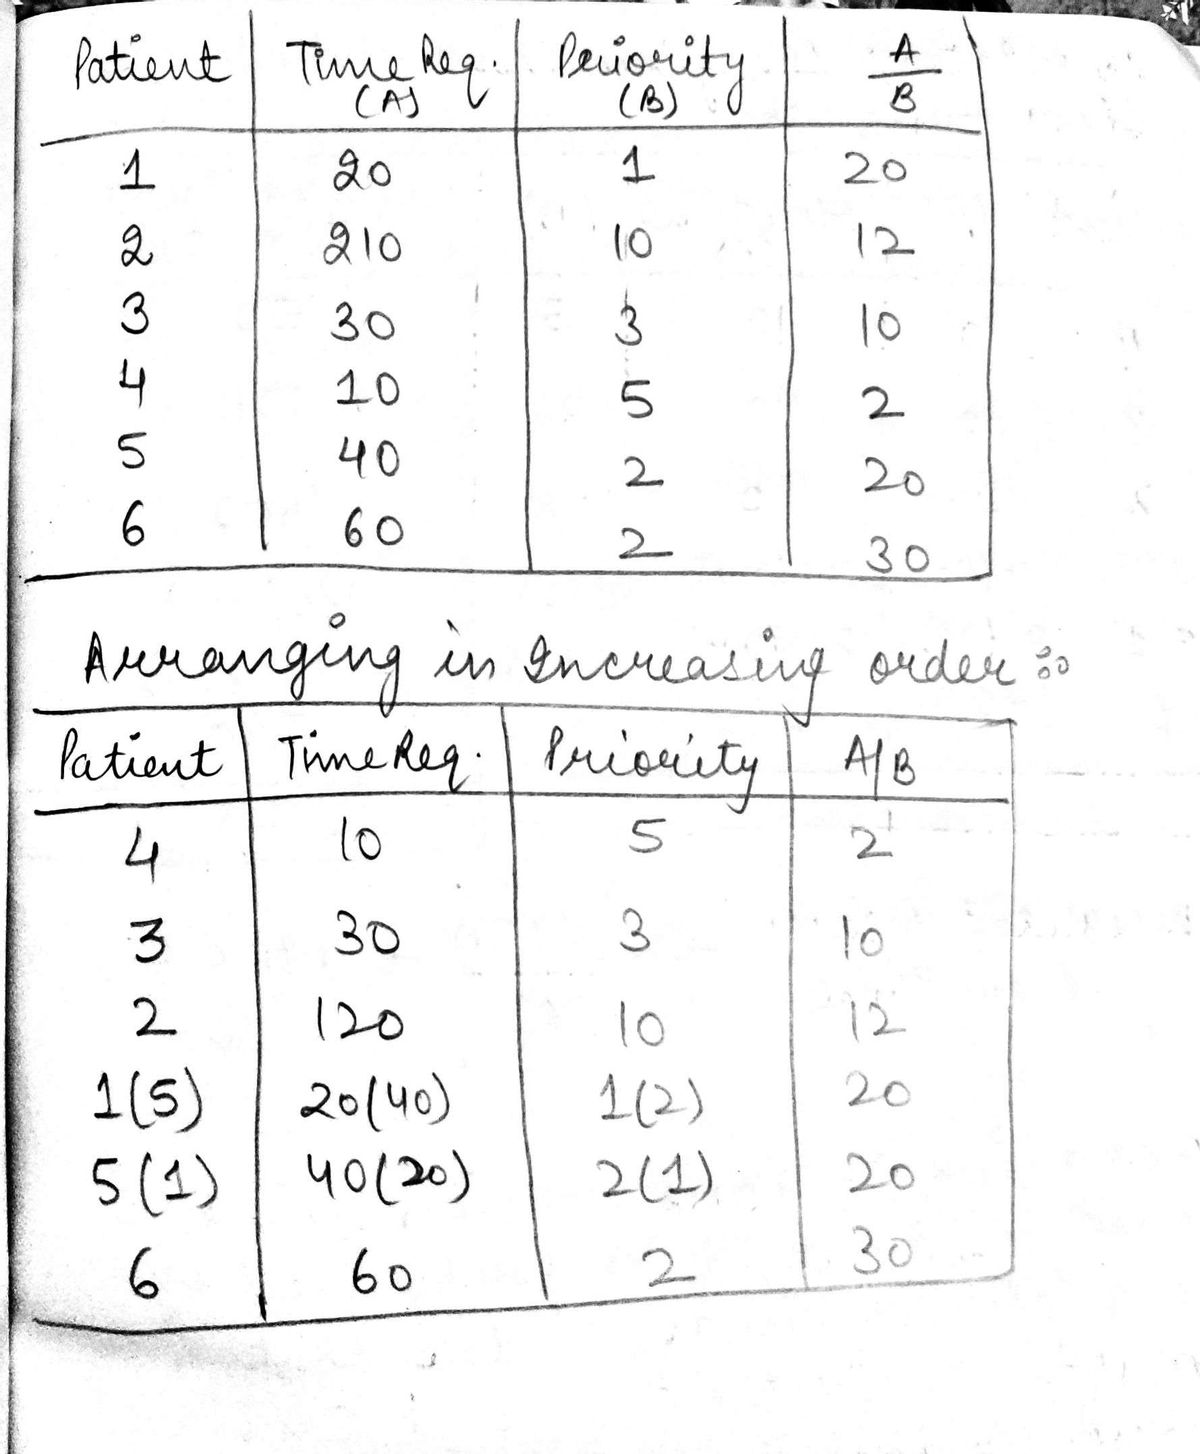 Patient Time Req. (A) Priority (B) A/B
1 20 1 20
2 210 10 12
3 30 3 10
4 10 5 2
5 40 2 20
6 60 2 30
Arranging in Increasing order :
Patient Time Req. Priority A/B
4 10 5 2
3 30 3 10
2 120 10 12
1(5) 20(40) 1(2) 20
5(1) 40(20) 2(1) 20
6 60 2 30